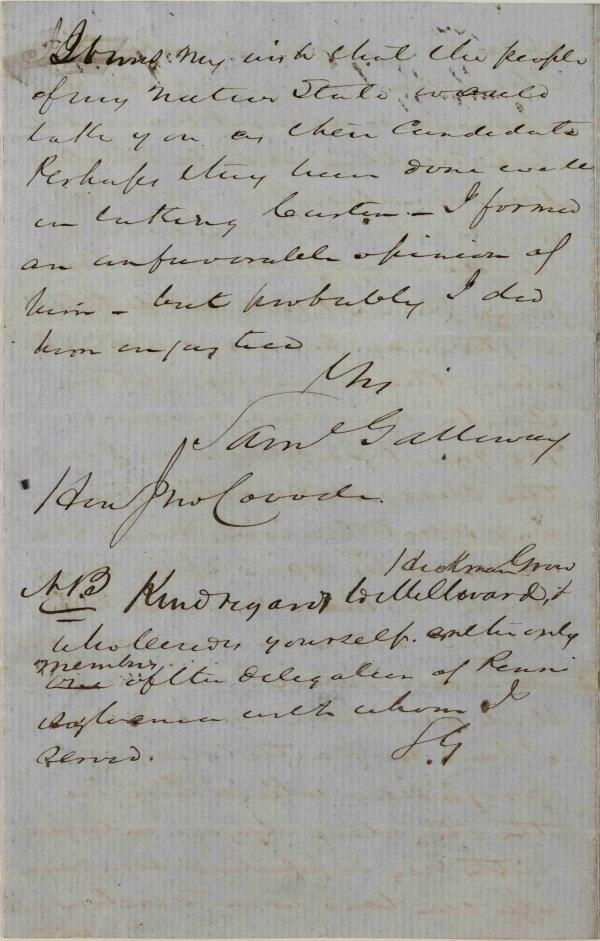 It was my wish that the people
of my native State would
take you as their Candidate
Perhaps they have done well
in taking Curtin – I formed
an unfavorable opinion of
him – but probably I did
him injustice
Sam Galloway
Hon Jno Covode
Hickman Grow
NB Kind regards to Millward, &
who besides yourself are the only
members
one of the delegation of Penn
sylvania with whom I
served.
S.G